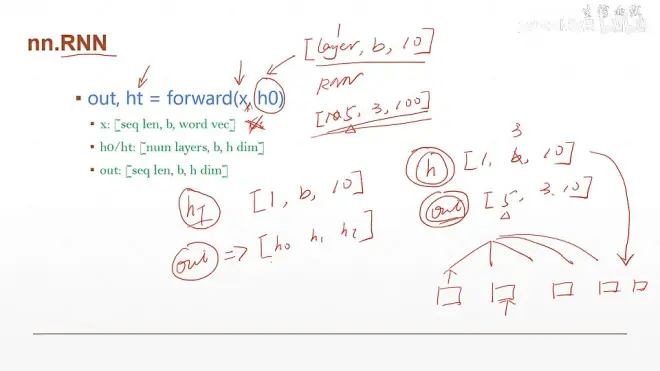 nn.RNN
out, ht = forward(x, h0)
x: [seq len, b, word vec]
h0/ht: [num layers, b, h dim]
out: [seq len, b, h dim]
1
[layer, b, 10]
RNN
5, 3, 100]
3
h [1, b, 10]
out [5, 3, 10]
[1, b, 10]
out => [h0 h1 h2]